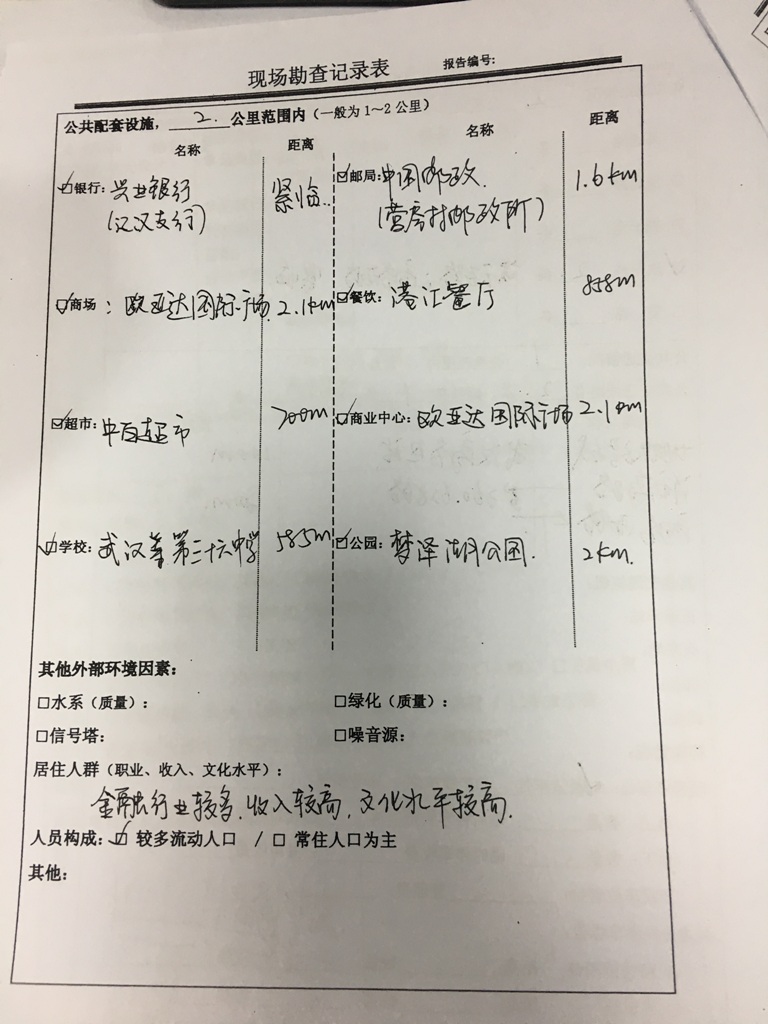 现场勘查记录表 报告编号:
公共配套设施, 2. 公里范围内(一般为1~2公里)
名称 距离 名称 距离
☑银行: 兴业银行 紧临.. ☑邮局: 中国邮政. 1.6km
(江汉支行) (营房村邮政所)
☑商场: 欧亚达国际广场 2.1km ☑餐饮: 港江餐厅 858m
☑超市: 中百超市 700m ☑商业中心: 欧亚达国际广场 2.1km
☑学校: 武汉第三十六中学 585m ☑公园: 梦泽湖公园. 2km.
其他外部环境因素:
□水系(质量): □绿化(质量):
□信号塔: □噪音源:
居住人群(职业、收入、文化水平):
金融行业较多,收入较高,文化水平较高.
人员构成:☑ 较多流动人口 / □ 常住人口为主
其他: